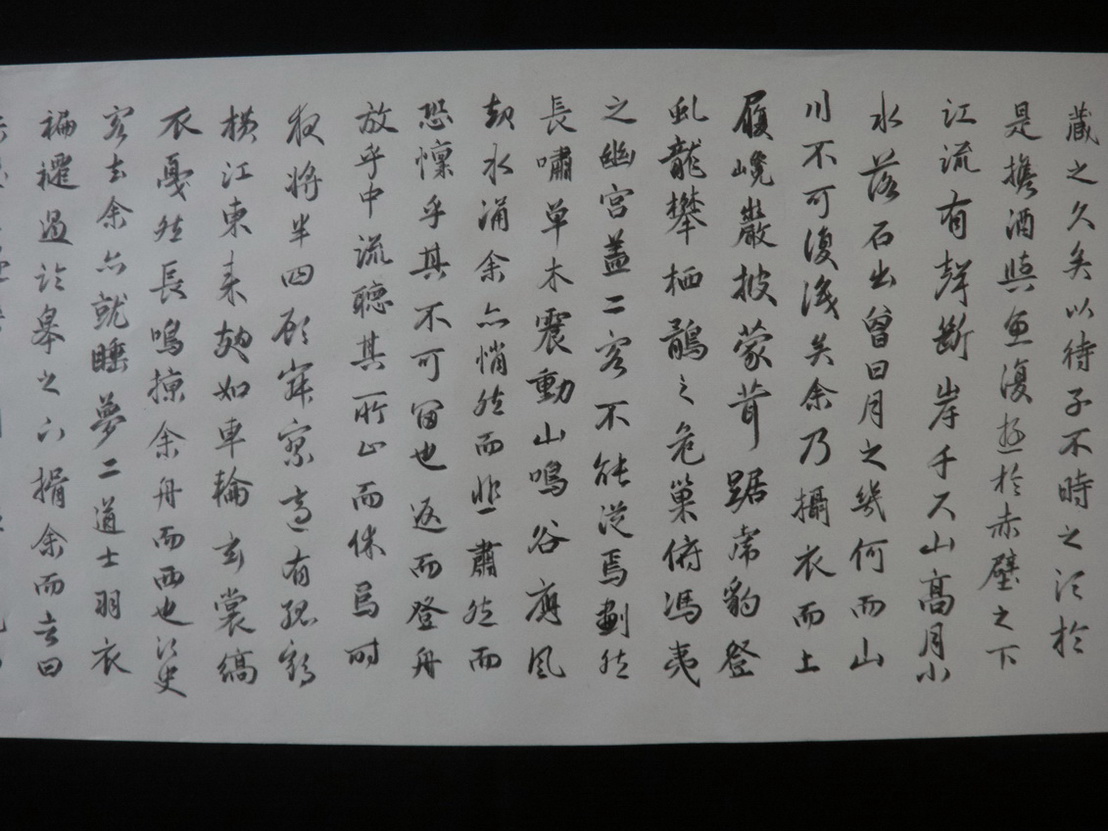 藏之久矣以待子不時之須於
是攜酒與魚復遊於赤壁之下
江流有聲斷岸千尺山高月小
水落石出曾日月之幾何而山
川不可復識矣余乃攝衣而上
履巉巖披蒙茸踞虎豹登
虬龍攀栖鶻之危巢俯馮夷
之幽宮盖二客不能從焉劃然
長嘯草木震動山鳴谷應風
起水涌余亦悄然而悲肅然而
恐懍乎其不可留也返而登舟
放乎中流聽其所止而休焉時
夜將半四顧寂寥適有孤鶴
橫江東來翅如車輪玄裳縞
衣戛然長鳴掠余舟而西也須臾
客去余亦就睡夢二道士羽衣
褊躚過於皋之下揖余而言曰